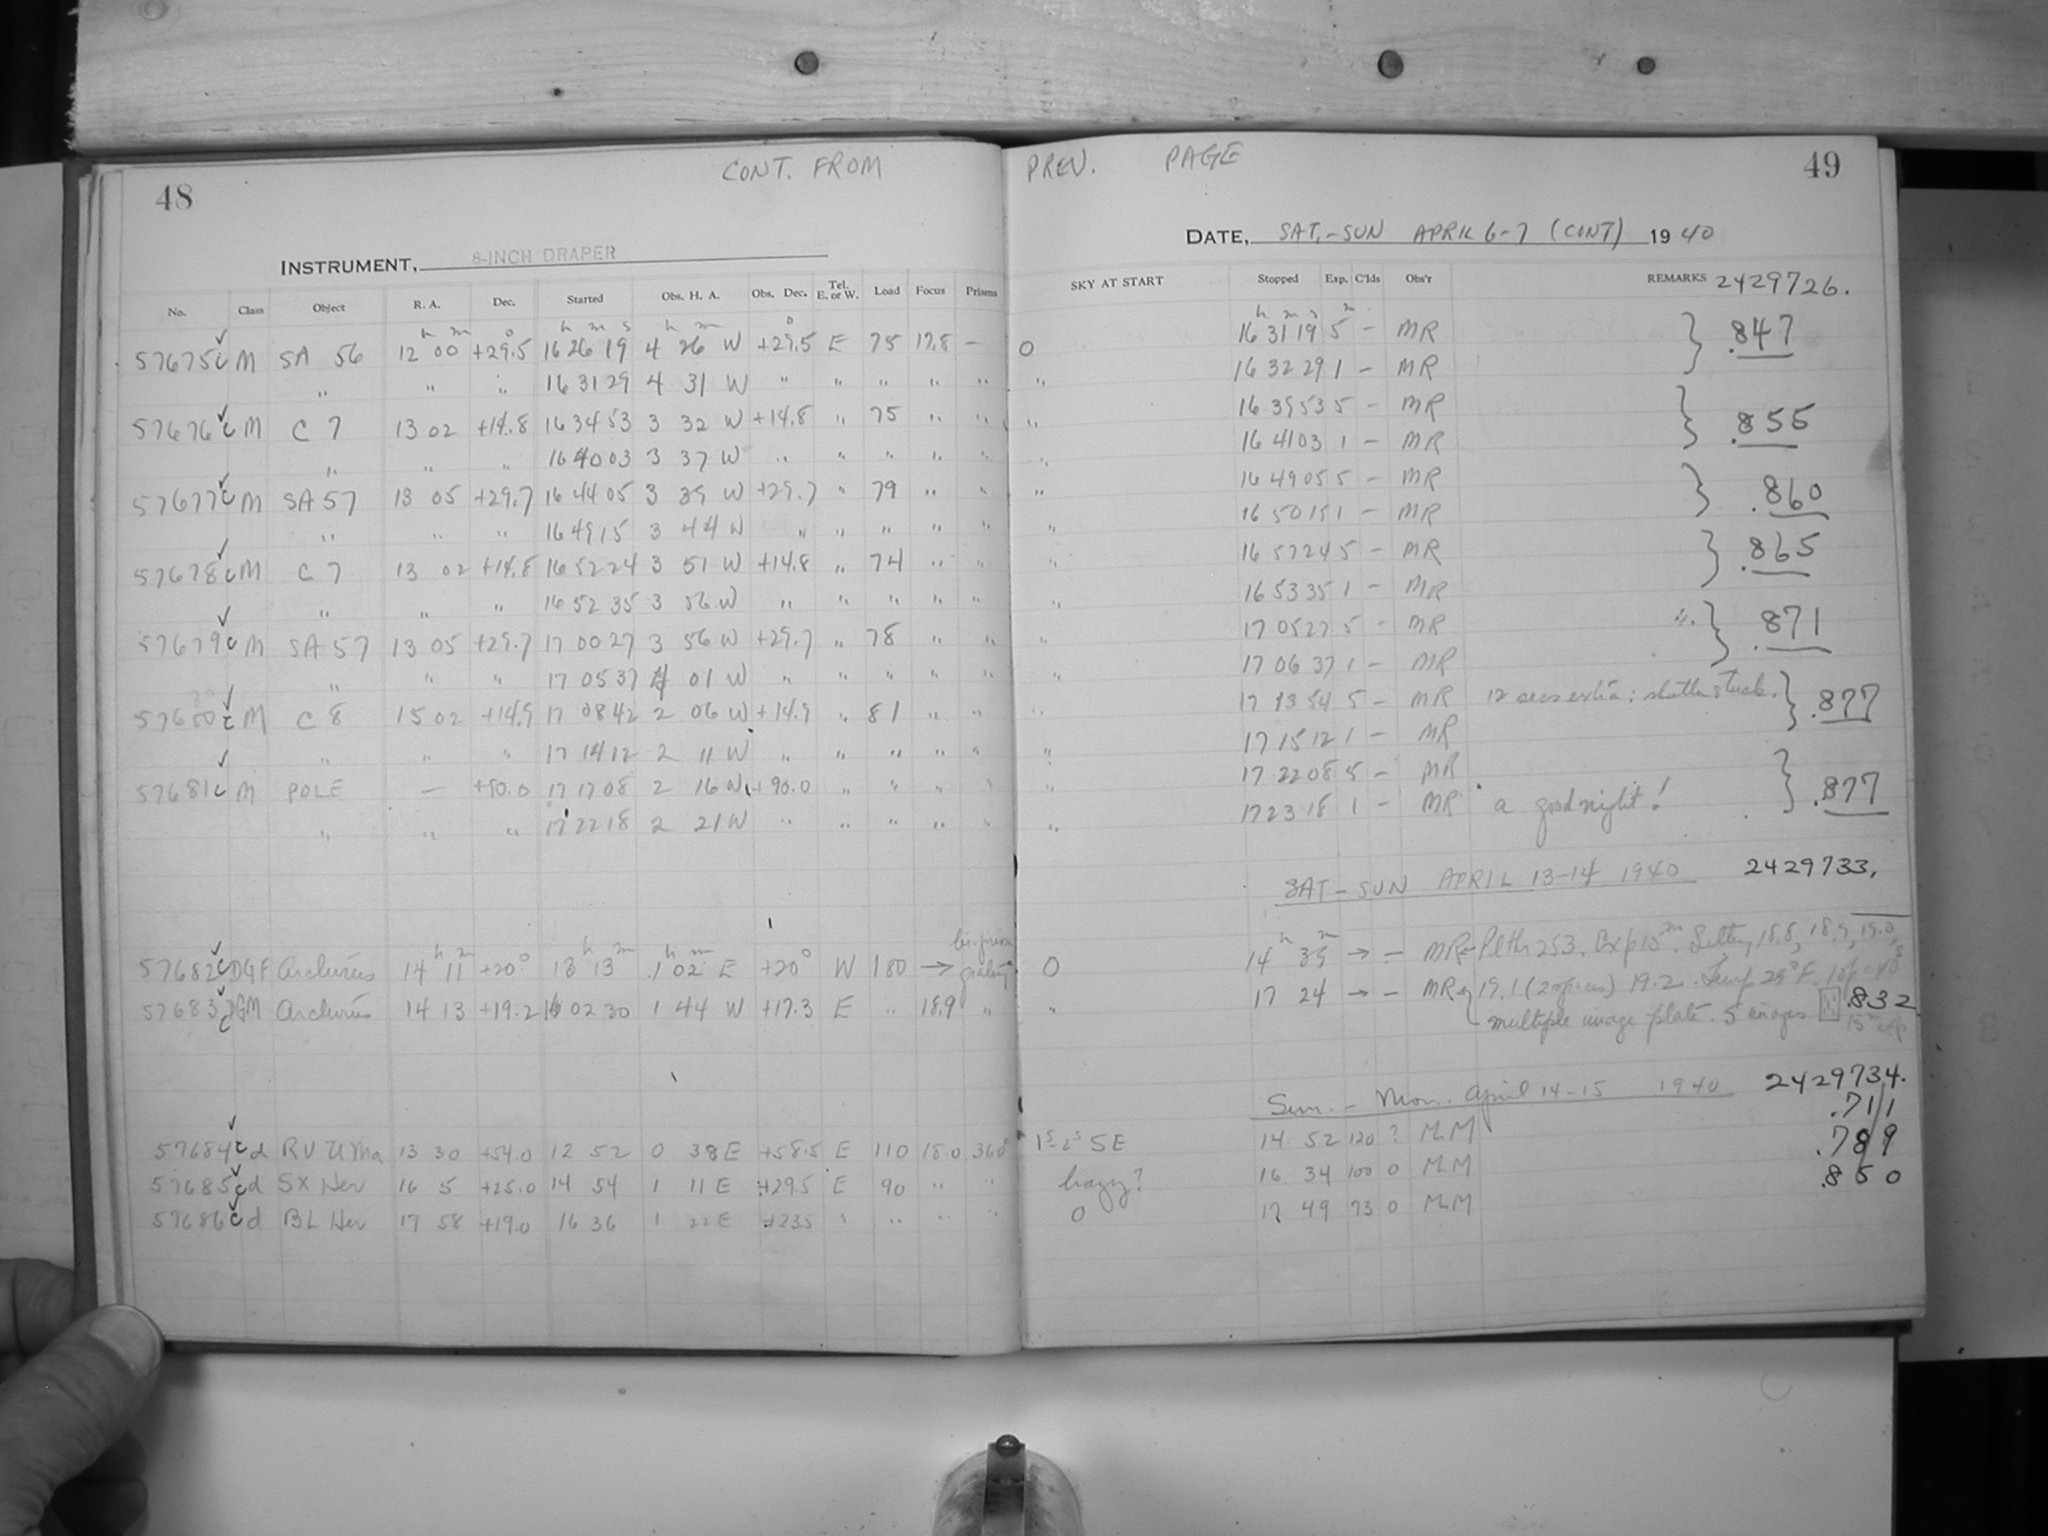 CONT. FROM PREV. PAGE
48
49
INSTRUMENT, 8-INCH DRAPER
DATE, SAT.-SUN APRIL 6-7 (CONT) 1940
No. Class Object R. A. Dec. Started Obs. H. A. Obs. Dec. Tel. E. or W. Load Focus Prisms SKY AT START Stopped Exp. C'lds Obs'r REMARKS 2429726.
57675 c M SA 56 12 00 +29.5 16 26 19 4 26 W +29.5 E 75 17.8 — 0 16 31 19 5 — MR } .847
" " " 16 31 29 4 31 W " " " " " " 16 32 29 1 — MR
57676 c M C 7 13 02 +14.8 16 34 53 3 32 W +14.8 " 75 " " " 16 39 53 5 — MR } .855
" " " 16 40 03 3 37 W " " " " " " 16 41 03 1 — MR
57677 c M SA 57 13 05 +29.7 16 44 05 3 39 W +29.7 " 79 " " " 16 49 05 5 — MR } .860
" " " 16 49 15 3 44 W " " " " " " 16 50 15 1 — MR
57678 c M C 7 13 02 +14.8 16 52 24 3 51 W +14.8 " 74 " " " 16 57 24 5 — MR } .865
" " " 16 52 35 3 56 W " " " " " " 16 53 35 1 — MR
57679 c M SA 57 13 05 +29.7 17 00 27 3 56 W +29.7 " 78 " " " 17 05 27 5 — MR } .871
" " " 17 05 37 4 01 W " " " " " " 17 06 37 1 — MR
57680 c M C 8 15 02 +14.9 17 08 42 2 06 W +14.9 " 81 " " " 17 13 54 5 — MR 12 secs extra; shutter stuck. } .877
" " " 17 14 12 2 11 W " " " " " " 17 15 12 1 — MR
57681 c M POLE — +90.0 17 17 08 2 16 W +90.0 " " " " " 17 22 08 5 — MR } .877
" " " 17 22 18 2 21 W " " " " " " 17 23 18 1 — MR a good night!
SAT-SUN APRIL 13-14 1940 2429733.
57682 c DGF Arcturus 14 11 +20° 13 13 1 02 E +20° W 180 → 0 14 39 → — MR Exp 15m. 18.8, 18.9, 19.0,
57683 c Arcturus 14 13 +19.2 16 02 30 1 44 W +17.3 E " 18.9 " " 17 24 → — MR 19.1 (2 spaces) 19.2. Temp 29° F. .832
multiple image plate. 5 images 15m
Sun. - Mon. April 14-15 1940 2429734.
.711
57684 c d RV UMa 13 30 +54.0 12 52 0 38 E +58.5 E 110 18.0 360° SE 14 52 120 ? MLM .789
57685 c d SX Her 16 5 +25.0 14 54 1 11 E +29.5 E 90 " " hazy? 16 34 100 0 MLM .850
57686 c d BL Her 17 58 +19.0 16 36 1 22 E +23.5 " " " " 0 17 49 73 0 MLM